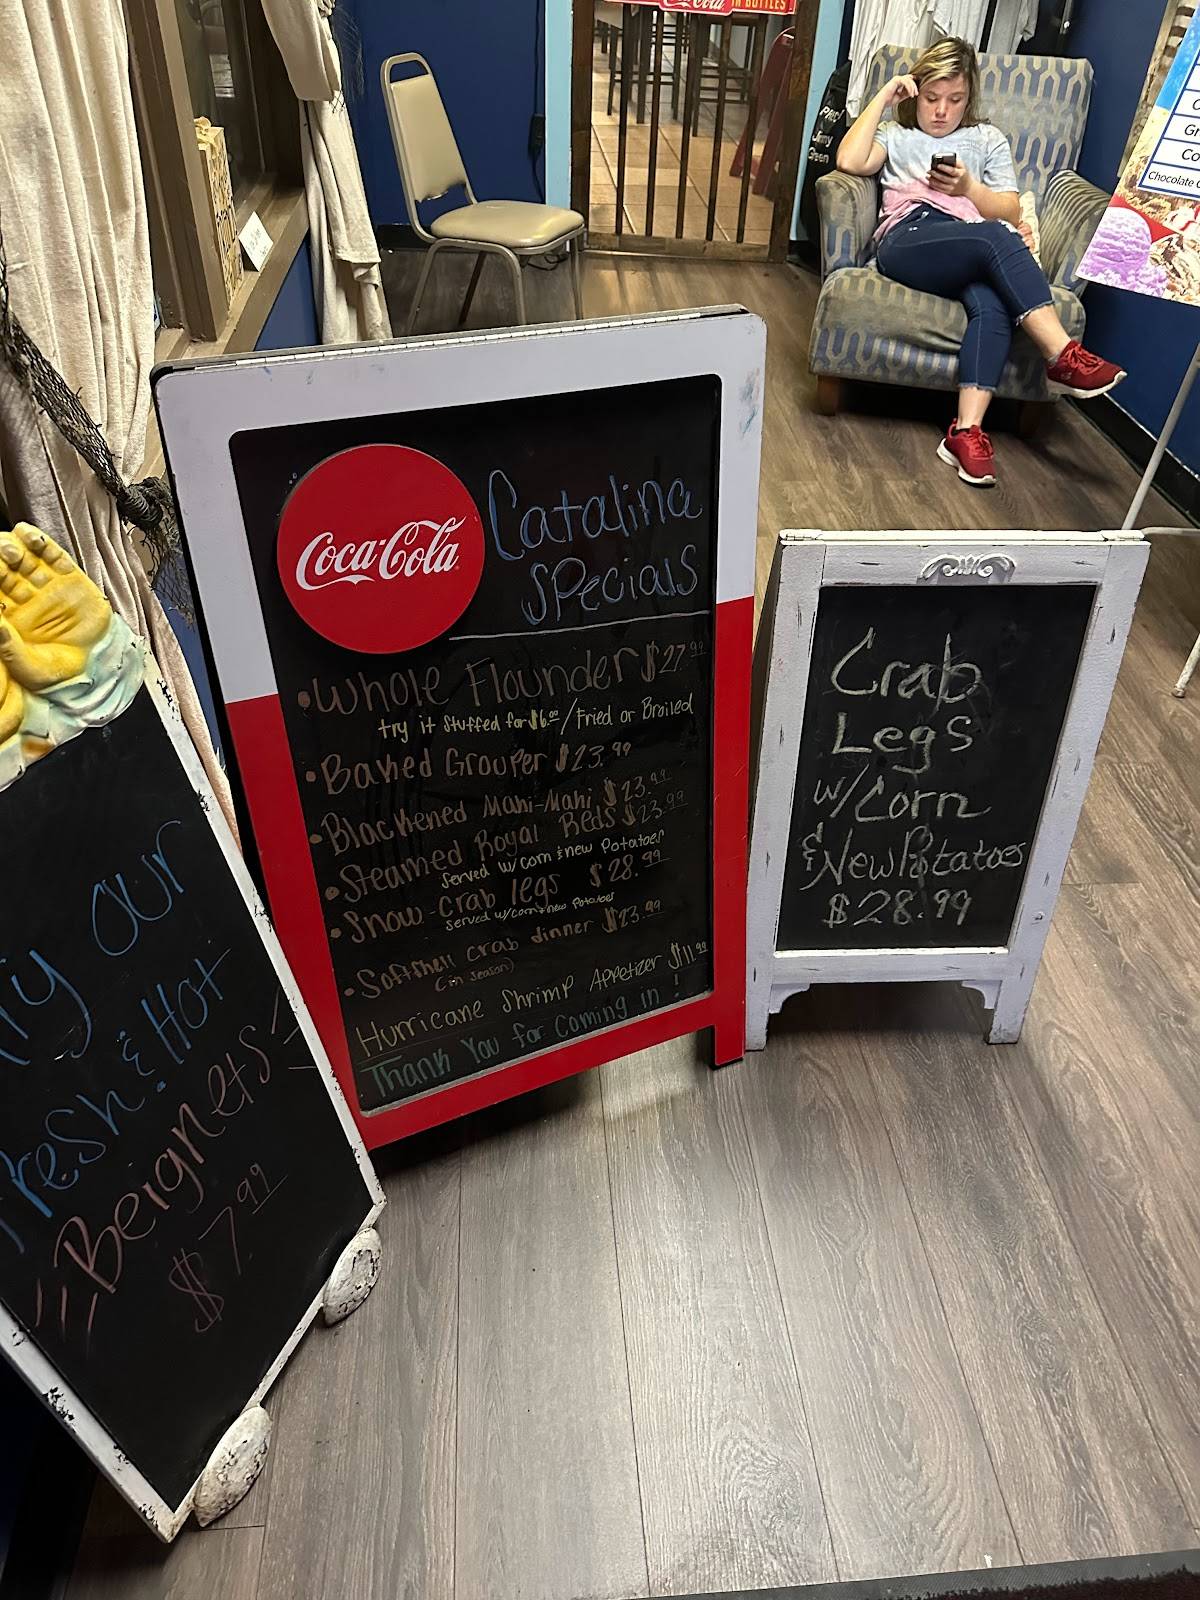 Coca-Cola
IN BOTTLES
Jimmy
Green
Gr
Co
Chocolate C
Coca-Cola
Catalina
Specials
• Whole Flounder $27.99
try it stuffed for $6.00/Fried or Broiled
• Baked Grouper $23.99
• Blackened Mahi-Mahi $23.99
• Steamed Royal Reds $23.99
Served w/corn & new Potatoes
• Snow-Crab legs $28.99
Served w/corn & new Potatoes
• Softshell crab dinner $23.99
(in season)
Hurricane Shrimp Appetizer $11.99
Thank You for Coming in!
Crab
Legs
w/Corn
& New Potatoes
$28.99
ry our
Fresh & Hot
Beignets
$7.99